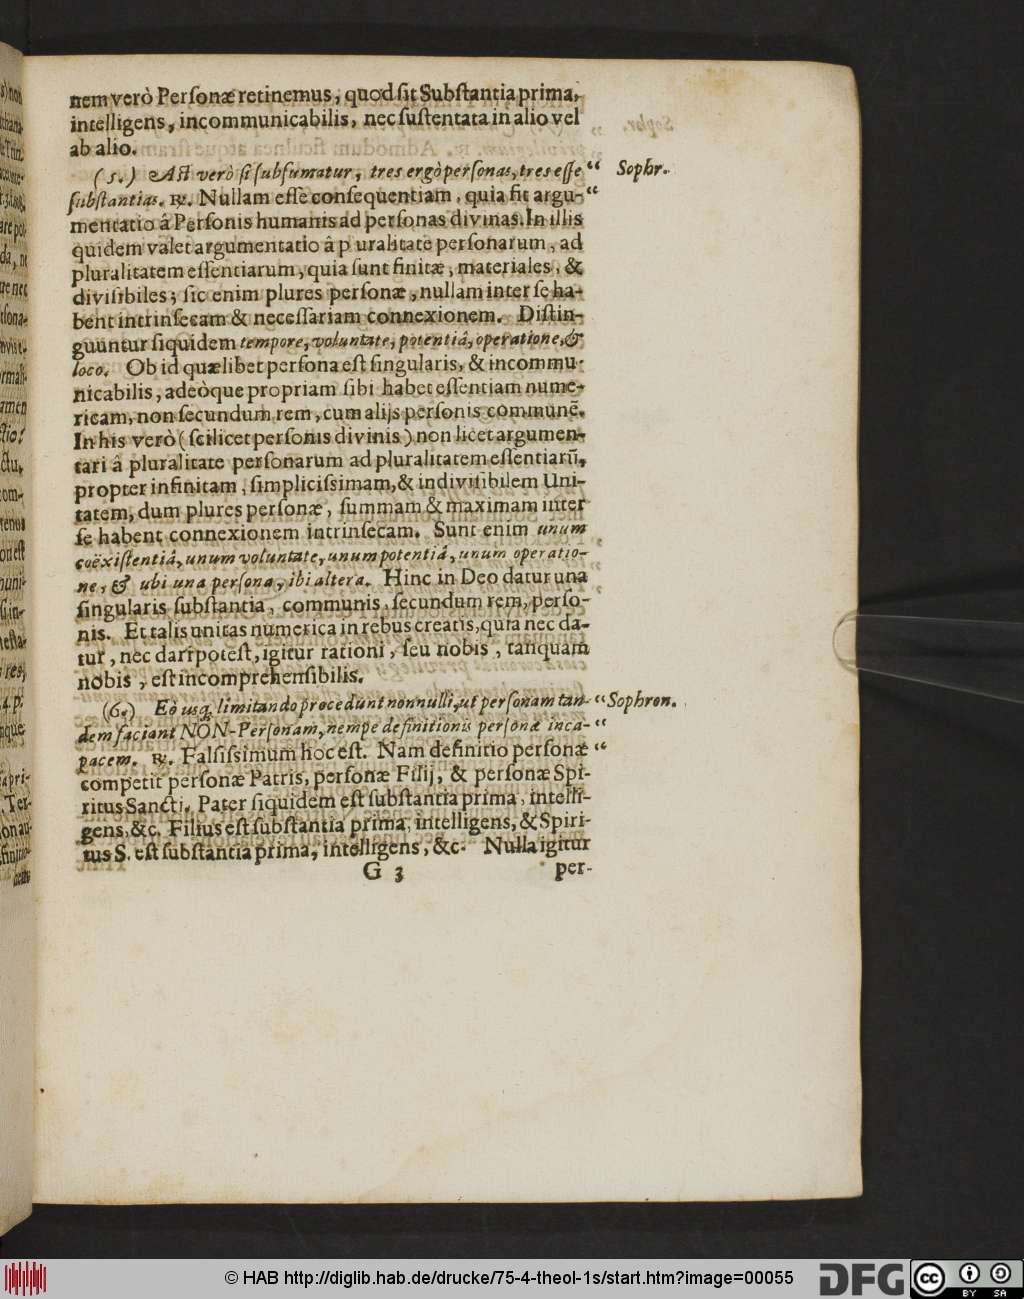 nem verò Perſonæ retinemus, quod ſit Subſtantia prima,
intelligens, incommunicabilis, nec ſuſtentata in alio vel
ab alio.
(5.) Aſt verò ſi ſubſumatur, tres ergò perſonas, tres eſſe “ Sophr.
ſubſtantias. ℞. Nullam eſſe conſequentiam, quia fit argu- “
mentatio â Perſonis humanis ad perſonas divinas. In illis
quidem valet argumentatio â p uralitate perſonarum, ad
pluralitatem eſſentiarum, quia ſunt finitæ, materiales, &
diviſibiles; ſic enim plures perſonæ, nullam inter ſe ha-
bent intrinſecam & neceſſariam connexionem. Diſtin-
guuntur ſiquidem tempore, voluntate, potentiâ, operatione, &
loco. Ob id quælibet perſona eſt ſingularis, & incommu-
nicabilis, adeòque propriam ſibi habet eſſentiam nume-
ricam, non ſecundum rem, cum alijs perſonis commune̅.
In his verò (ſcilicet perſonis divinis) non licet argumen-
tari â pluralitate perſonarum ad pluralitatem eſſentiarū,
propter infinitam, ſimpliciſsimam, & indiviſibilem Uni-
tatem, dum plures perſonæ, ſummam & maximam inter
ſe habent connexionem intrinſecam. Sunt enim unum
coëxiſtentiâ, unum voluntate, unum potentiâ, unum operatio-
ne, & ubi una perſona, ibi altera. Hinc in Deo datur una
ſingularis ſubſtantia, communis, ſecundum rem, perſo-
nis. Et talis unitas numerica in rebus creatis, quia nec da-
tur, nec dari poteſt, igitur rationi, ſeu nobis, tanquam
nobis, eſt incomprehenſibilis.
(6.) Eò usq; limitando procedunt nonnulli, ut perſonam tan- “ Sophron.
dem faciant NON-Perſonam, nempe definitionis perſonæ inca- “
pacem. ℞. Falſiſsimum hoc eſt. Nam definitio perſonæ “
competit perſonæ Patris, perſonæ Filij, & perſonæ Spi-
ritus Sancti. Pater ſiquidem eſt ſubſtantia prima, intelli-
gens, &c. Filius eſt ſubſtantia prima, intelligens, & Spiri-
tus S. eſt ſubſtantia prima, intelligens, &c. Nulla igitur
G 3 per-
© HAB http://diglib.hab.de/drucke/75-4-theol-1s/start.htm?image=00055
DFG cc BY SA